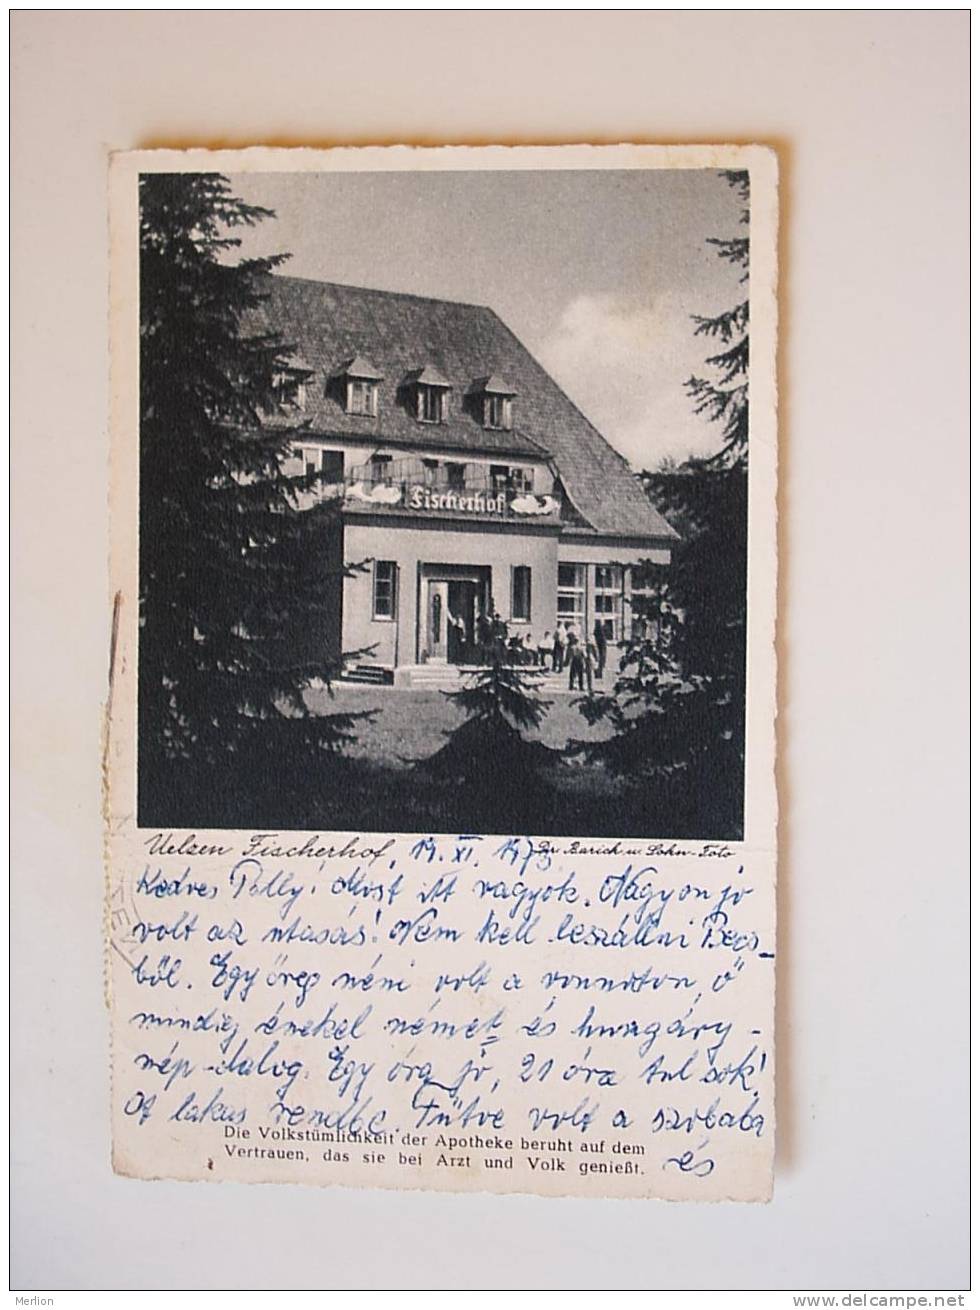 Fischerhof
Uelzen Fischerhof, 19. XI. 1973
Barich u. Sohn-Foto
Kedves Polly! Most itt vagyok. Nagyon jó
volt az utasás! Nem kell leszállni Becs-
ből. Egy öreg néni volt a vonnaton, ő
mindig énekel német és hungáry-
nép-dalog. Egy óra jó, 21 óra tul sok!
A lakas rendbe. Fűtve volt a szobaba
és
Die Volkstümlichkeit der Apotheke beruht auf dem
Vertrauen, das sie bei Arzt und Volk genießt.
Merlion
http://www.delcampe.net